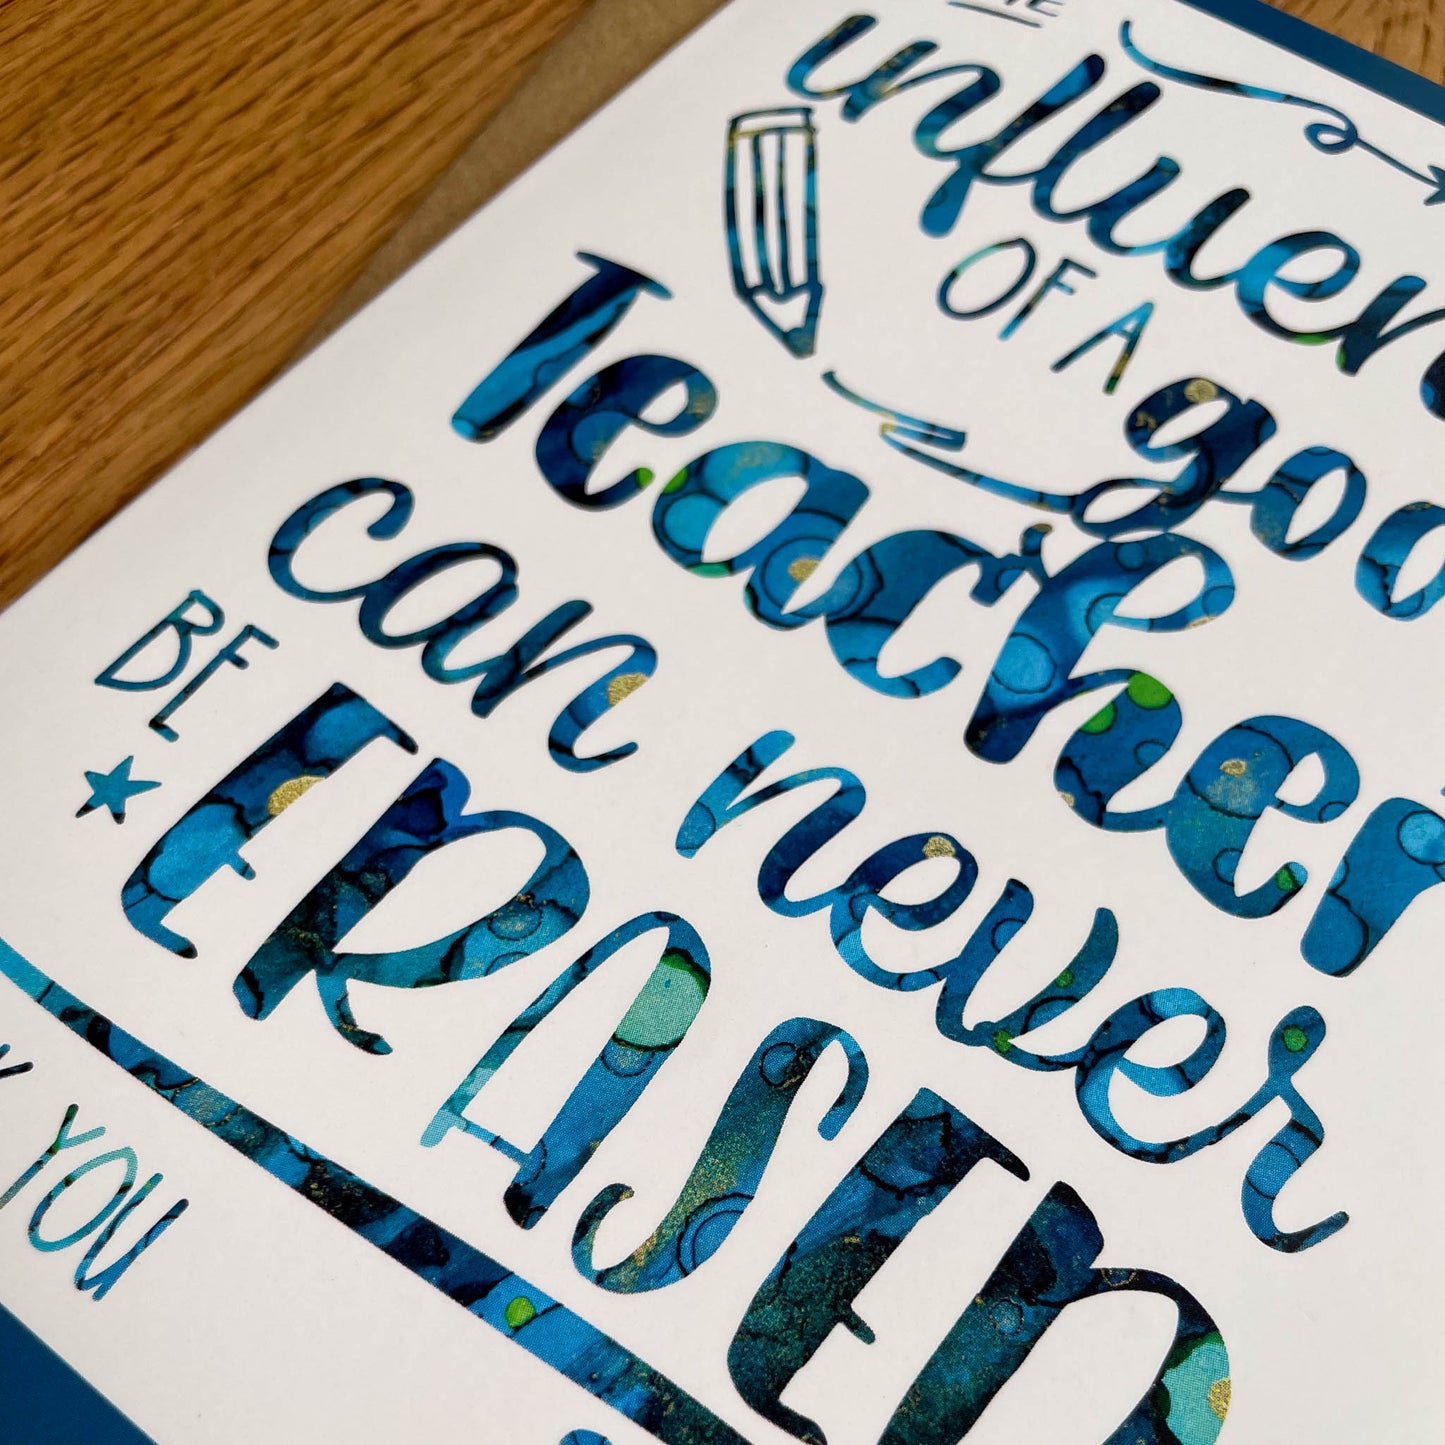 THE
influenc
OF A good
Teacher
can never
BE ERASED
YOU